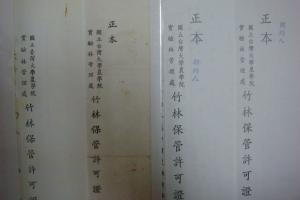 正本
國立台灣大學農學院
實驗林管理處
竹林保管許可證
正本
國立台灣大學農學院
實驗林管理處
竹林保管許可證
正本
國立台灣大學農學院
實驗林管理處
竹林保管許可證
國立台灣大學農學院
實驗林管理處
竹林保管許可證